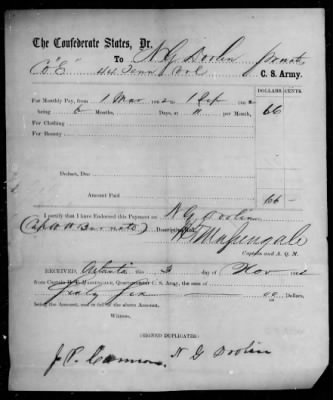 The Confederate States, Dr.
To N G Doolin private
Co "E" 44 Tenn Vol C. S. Army.
DOLLARS. CENTS.
For Monthly Pay, from 1 Mar 2 1 Sep 2 66
being 6 Months, Days, at 11 per Month,
For Clothing
For Bounty
Deduct, Due
Amount Paid 66
I certify that I have Endorsed this Payment on N G Doolin
Descriptive Roll,
W T Massengale
Captain and A. Q. M.
RECEIVED, Atlanta this 3 day of Nov
from Captain Quartermaster C. S. Army, the sum of
Sixty Six Dollars,
being the Amount, and in full of the above Amount.
Witness.
(SIGNED DUPLICATES.)
J. P. Cannon N G Doolin